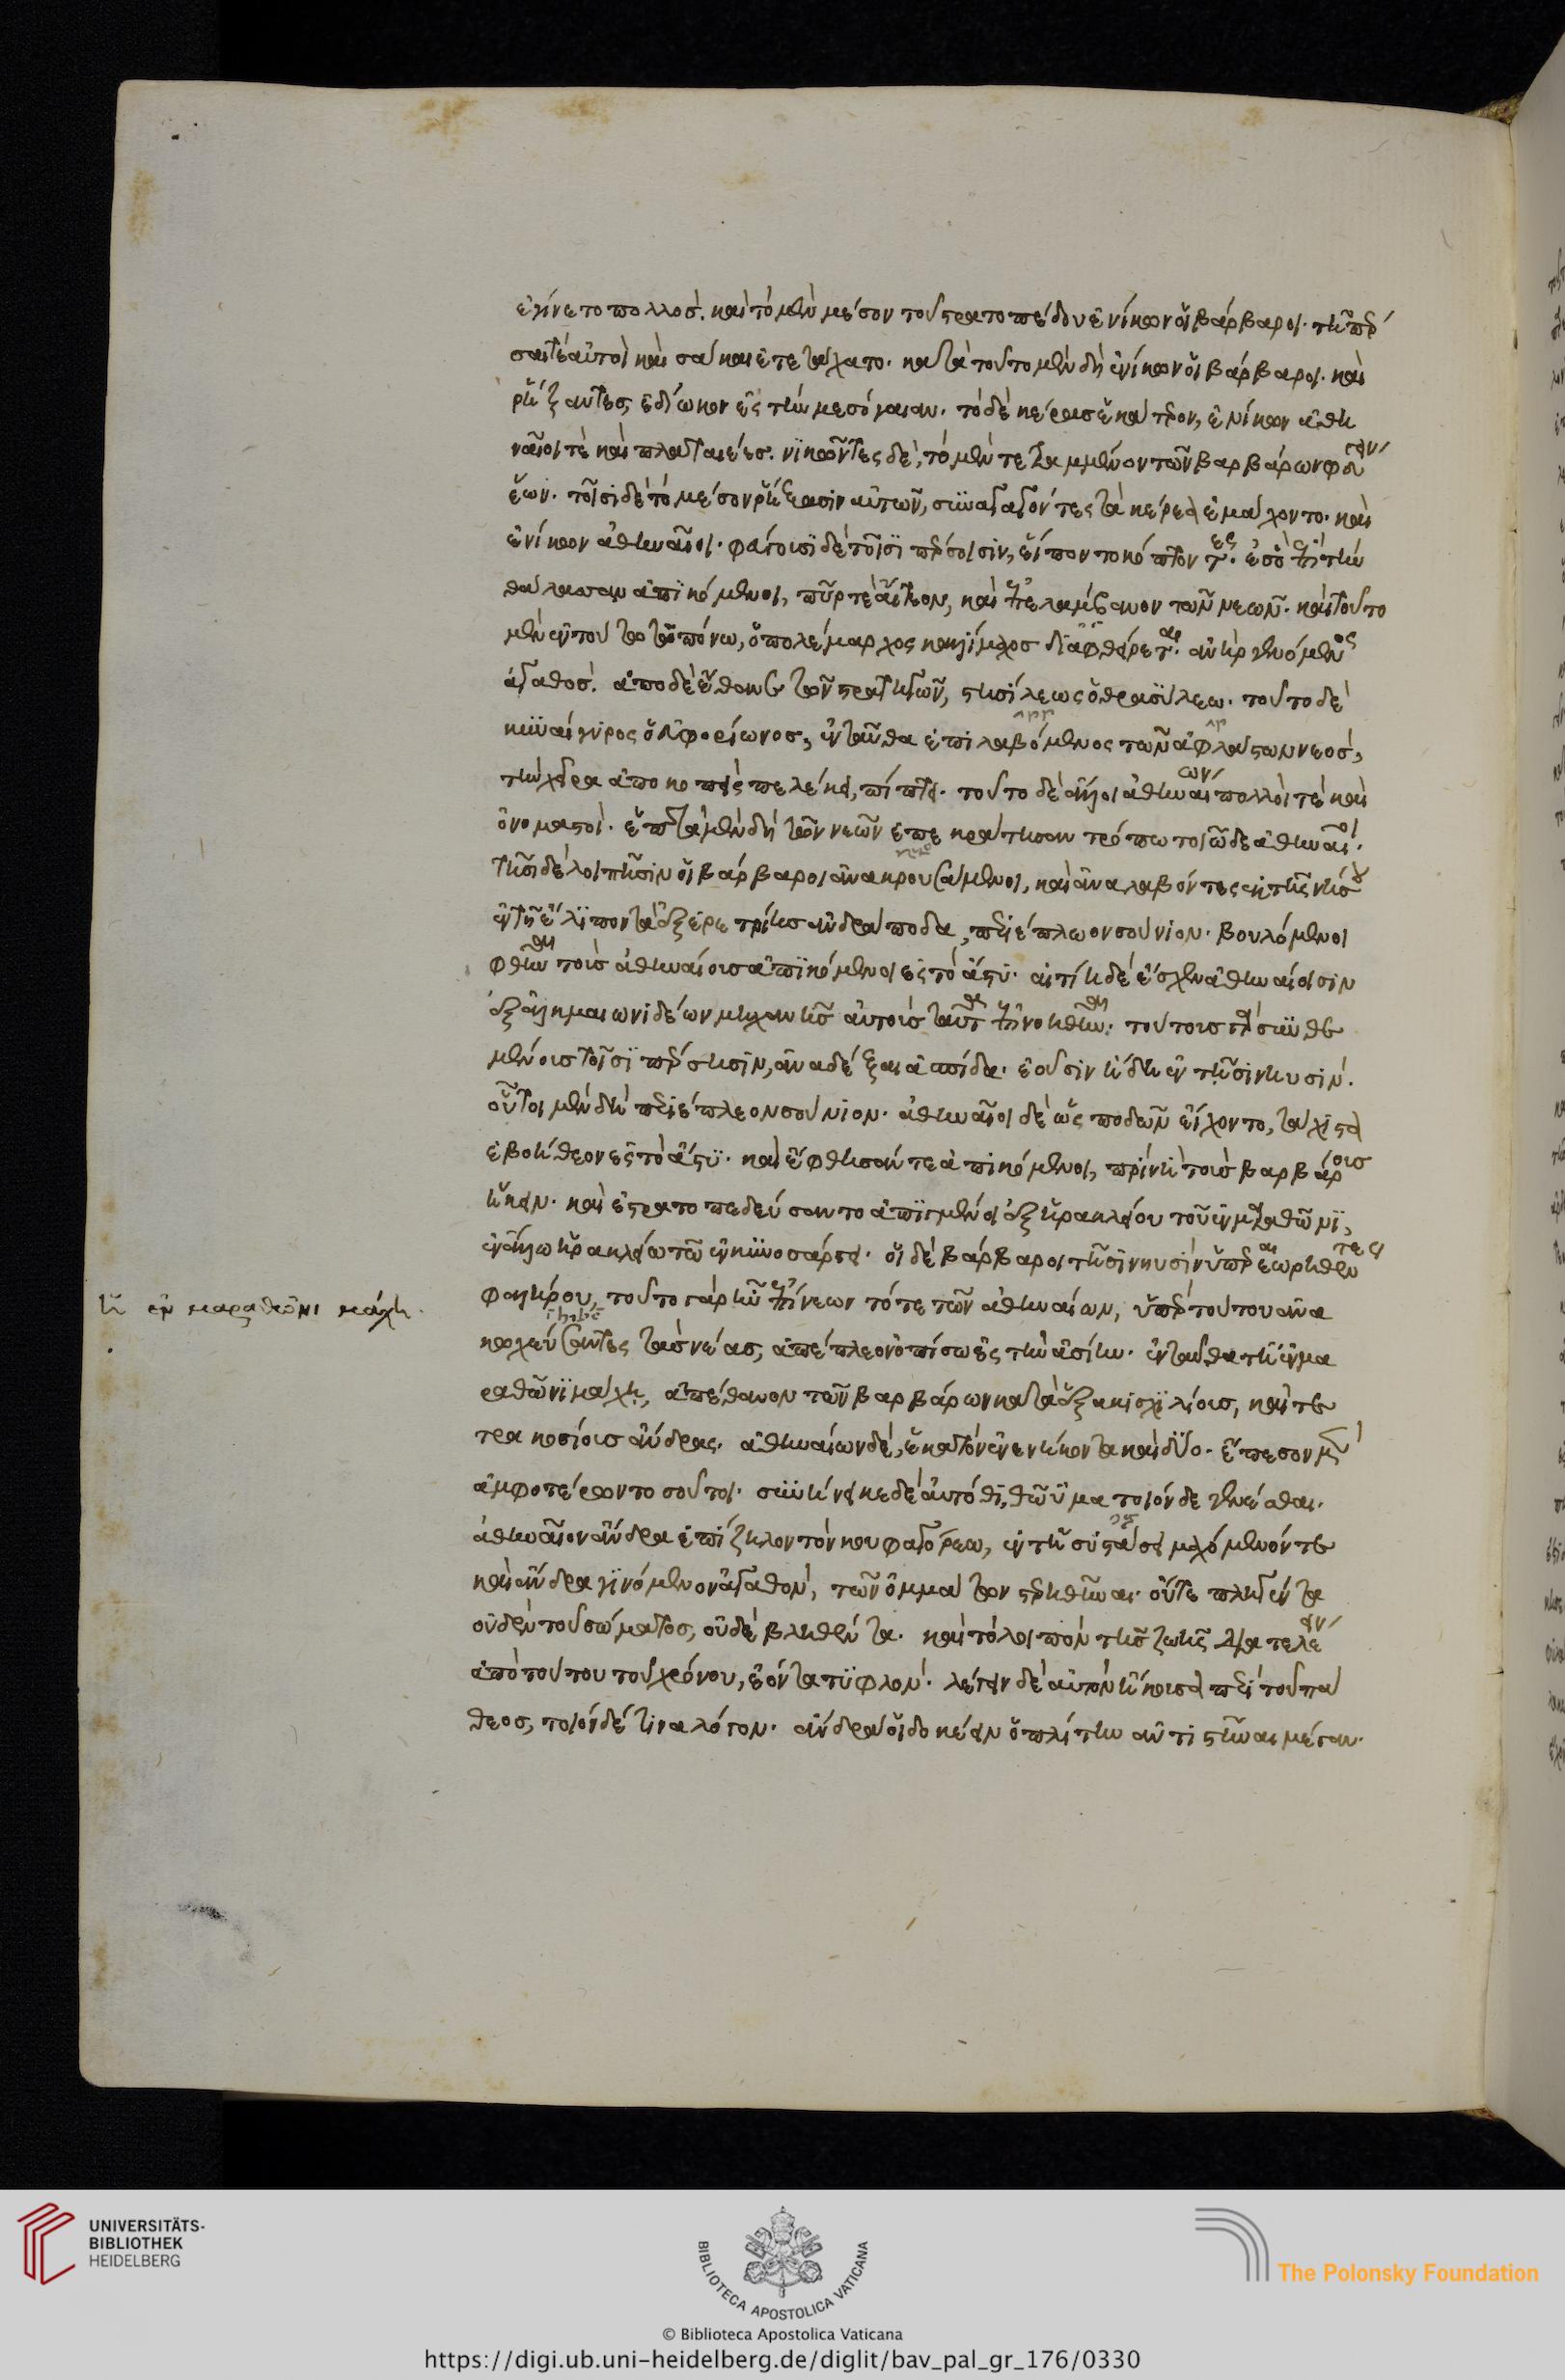 ἐγίνετο πολλός. καὶ τὸ μὲν μέσον τοῦ στρατοπέδου ἐνίκων οἱ βάρβαροι. τῆ πέρ
σαι τὲ αὐτοὶ καὶ σάκαι ἐτετάχατο. κατὰ τοῦτο μὲν δὴ ἐνίκων οἱ βάρβαροι. καὶ
ῥήξαντες, ἐδίωκον ἐς τὴν μεσόγαιαν. τὸ δὲ κέρας ἑκάτερον, ἐνίκων ἀθη
ναῖοι τὲ καὶ πλαταιέες. νικῶντες δὲ, τὸ μὲν τετραμμένον τῶν βαρβάρων φεύγειν
ἔων. τοῖσι δὲ τὸ μέσον ῥήξασιν αὐτῶν, συναγαγόντες τὰ κέρεα ἐμάχοντο. καὶ
ἐνίκων ἀθηναῖοι. φεύγουσι δὲ τοῖσι πέρσῃσιν, εἵποντο κόπτοντες. ἐς ὃ ἐπὶ τὴν
θάλασσαν ἀπικόμενοι, πῦρ τὲ αἴτεον, καὶ ἐπελαμβάνοντο τῶν νεῶν. καὶ τοῦτο
μὲν ἐν τούτω τῶ πόνω, ὁ πολέμαρχος καλλίμαχος διαφθείρεται. ἀνὴρ γενόμενος
ἀγαθός. ἀπὸ δὲ ἔθανε τῶν στρατηγῶν, στησίλεως ὁ θρασύλεω. τοῦτο δὲ
κυναίγυρος ὁ εὐφορίωνος, ἐνταῦθα ἐπιλαβόμενος τῶν ἀφλάστων νεός,
τὴν χεῖρα ἀποκοπεὶς πελέκει, πίπτει. τοῦτο δὲ ἄλλοι ἀθηναίων πολλοί τὲ καὶ
ὀνομαστοί. ἑπτὰ μὲν δὴ τῶν νεῶν ἐπεκράτησαν τρόπω τοιῶδε ἀθηναῖοι.
τῆσι δὲ λοιπῆσιν οἱ βάρβαροι ἀνακρουσάμενοι, καὶ ἀναλαβόντες ἐκ τῆς νήσου
ἐν τῆ ἔλιπον τὰ ἐξ ἐρετρίης ἀνδράποδα, περιέπλωον σούνιον. βουλόμενοι
φθῆναι τοὺς ἀθηναίους ἀπικόμενοι ἐς τὸ ἄστυ. αἰτίη δὲ ἔσχεν ἀθηναίοισιν
ἐξ ἀλκμαιωνιδέων μηχανῆς αὐτοὺς ταῦτα ἐπινοηθῆναι. τούτους γὰρ συνθε
μένους τοῖσι πέρσησιν, ἀναδέξαι ἀσπίδα. ἐοῦσιν ἤδη ἐν τῆσι νηυσίν.
οὗτοι μὲν δὴ περιέπλεον σούνιον. ἀθηναῖοι δὲ ὡς ποδῶν εἶχον το, τάχιστα
ἐβοήθεον ἐς τὸ ἄστυ. καὶ ἔφθησάν τε ἀπικόμενοι, πρὶν ἢ τοὺς βαρβάρους
ἥκειν. καὶ ἐστρατοπεδεύσαντο ἀπιγμένοι ἐξ ἡρακλείου τοῦ ἐν μαραθῶνι,
ἐν ἄλλω ἡρακλείω τῶ ἐν κυνοσάργει. οἱ δὲ βάρβαροι τῆσι νηυσὶν ὑπεραιωρηθέντες
φαλήρου, τοῦτο γὰρ ἦν ἐπίνεων τότε τῶν ἀθηναίων, ὑπὲρ τούτου ἀνα
κωχεύσαντες τὰς νέας, ἀπέπλεον ὀπίσω ἐς τὴν ἀσίην. ἐν ταύτη τῆ ἐν μα
ραθῶνι μάχη, ἀπέθανον τῶν βαρβάρων κατὰ ἑξακισχιλίους, καὶ τε
τρακοσίους ἄνδρας. ἀθηναίων δὲ, ἑκατὸν ἐνενήκοντα καὶ δύο. ἔπεσον μὲν
ἀμφοτέρων τοσοῦτοι. συνήνεικε δὲ αὐτόθι, θῶυμα τοιόνδε γενέσθαι.
ἀθηναῖον ἄνδρα ἐπίζηλον τὸν κουφαγόρεω, ἐν τῆ συστάσει μαχόμενόν τε
καὶ ἄνδρα γινόμενον ἀγαθὸν, τῶν ὀμμάτων στερηθῆναι. οὔτε πληγέντα
οὐδὲν τοῦ σώματος, οὐδὲ βληθέντα. καὶ τὸ λοιπὸν τῆς ζωῆς διατελέειν
ἀπὸ τούτου τοῦ χρόνου, ἐόντα τυφλόν. λέγειν δὲ αὐτὸν ἤκουσα περὶ τοῦ πά
θεος, τοιόνδέ τινα λόγον. ἄνδρα οἱ δοκέειν ὁπλίτην ἀντιστῆναι μέγαν.
ἡ ἐν μαραθῶνι μάχη.
UNIVERSITÄTS-
BIBLIOTHEK
HEIDELBERG
BIBLIOTECA APOSTOLICA VATICANA
The Polonsky Foundation
© Biblioteca Apostolica Vaticana
https://digi.ub.uni-heidelberg.de/diglit/bav_pal_gr_176/0330